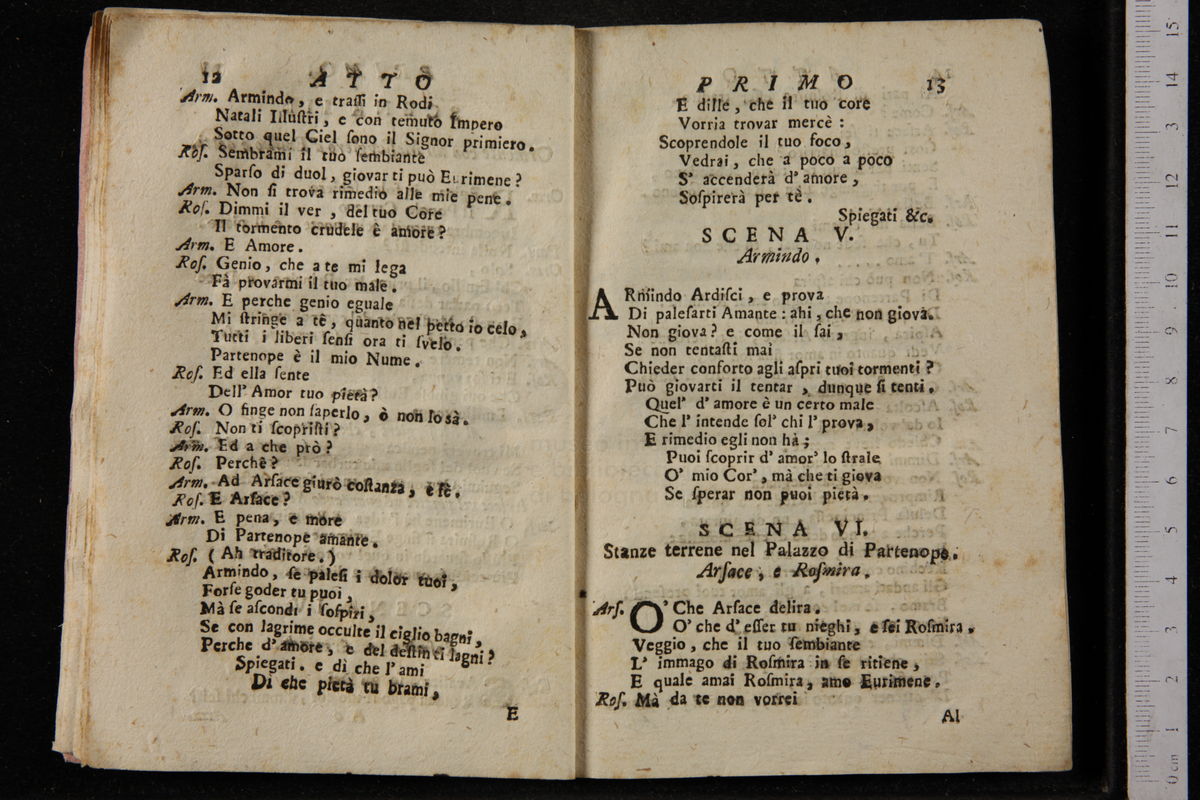 12 ATTO
Arm. Armindo, e traſſi in Rodi
Natali Illuſtri, e con temuto Impero
Sotto quel Ciel ſono il Signor primiero.
Roſ. Sembrami il tuo ſembiante
Sparſo di duol, giovar ti può Eurimene?
Arm. Non ſi trova rimedio alle mie pene.
Roſ. Dimmi il ver, del tuo Core
Il tormento crudele è amore?
Arm. E Amore.
Roſ. Genio, che a te mi lega
Fà provarmi il tuo male.
Arm. E perche genio eguale
Mi ſtringe a tê, quanto nel petto io celo,
Tutti i liberi ſenſi ora ti ſvelo.
Partenope è il mio Nume.
Roſ. Ed ella ſente
Dell' Amor tuo pietà?
Arm. O finge non ſaperlo, ò non lo sà.
Roſ. Non ti ſcopriſti?
Arm. Ed a che prò?
Roſ. Perchê?
Arm. Ad Arſace giurò coſtanza, e fê.
Roſ. E Arſace?
Arm. E pena, e more
Di Partenope amante.
Roſ. (Ah traditore.)
Armindo, ſe paleſi i dolor tuoi,
Forſe goder tu puoi,
Mà ſe aſcondi i ſoſpiri,
Se con lagrime occulte il ciglio bagni,
Perche d' amore, e del deſtin ti lagni?
Spiegati. e dì che l' ami
Di che pietà tu brami,
E
PRIMO 13
E dille, che il tuo core
Vorria trovar mercè:
Scoprendole il tuo foco,
Vedrai, che a poco a poco
S' accenderà d' amore,
Soſpirerà per tè.
Spiegati &c.
SCENA V.
Armindo.
ARmindo Ardiſci, e prova
Di paleſarti Amante: ahi, che non giova.
Non giova? e come il ſai,
Se non tentaſti mai
Chieder conforto agli aſpri tuoi tormenti?
Può giovarti il tentar, dunque ſi tenti.
Quel' d' amore è un certo male
Che l' intende ſol' chi l' prova,
E rimedio egli non hà;
Puoi ſcoprir d' amor' lo ſtrale
O' mio Cor', mà che ti giova
Se ſperar non puoi pietà.
SCENA VI.
Stanze terrene nel Palazzo di Partenope.
Arſace, e Roſmira.
Arſ. O' Che Arſace delira.
O' che d' eſſer tu nieghi, e ſei Roſmira.
Veggio, che il tuo ſembiante
L' immago di Roſmira in ſe ritiene,
E quale amai Roſmira, amo Eurimene.
Roſ. Mà da te non vorrei
Al
0 cm 1 2 3 4 5 6 7 8 9 10 11 12 13 14 15